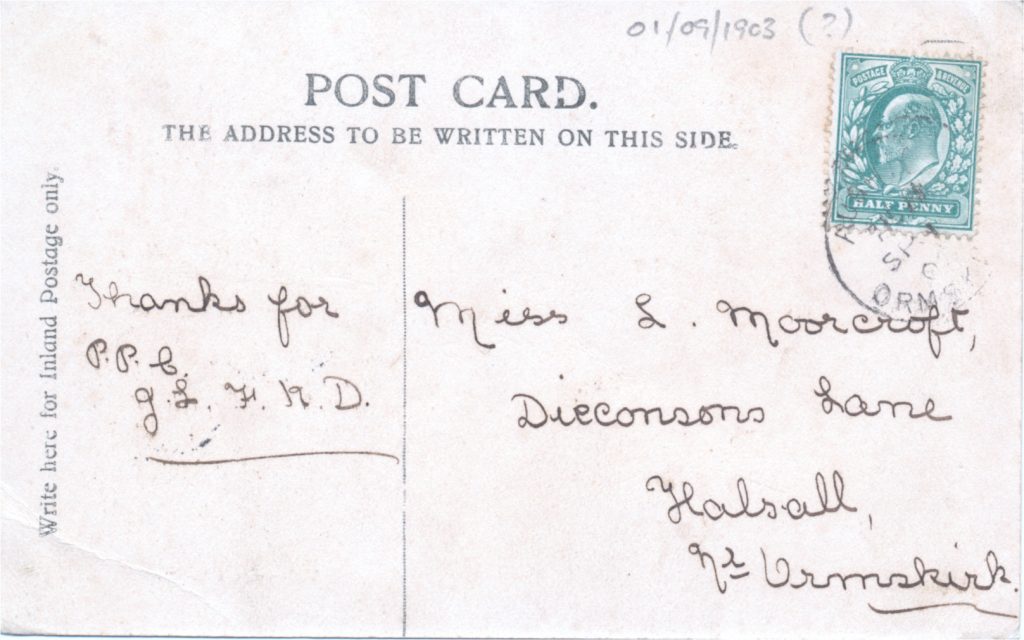 01/09/1903 (?)
POST CARD.
THE ADDRESS TO BE WRITTEN ON THIS SIDE.
POSTAGE & REVENUE
HALF PENNY
ORMS
Write here for Inland Postage only.
Thanks for
P.P.C.
g.L. F. K. D.
Miss L. Moorcroft,
Diecconsons Lane
Halsall,
Nr Ormskirk.